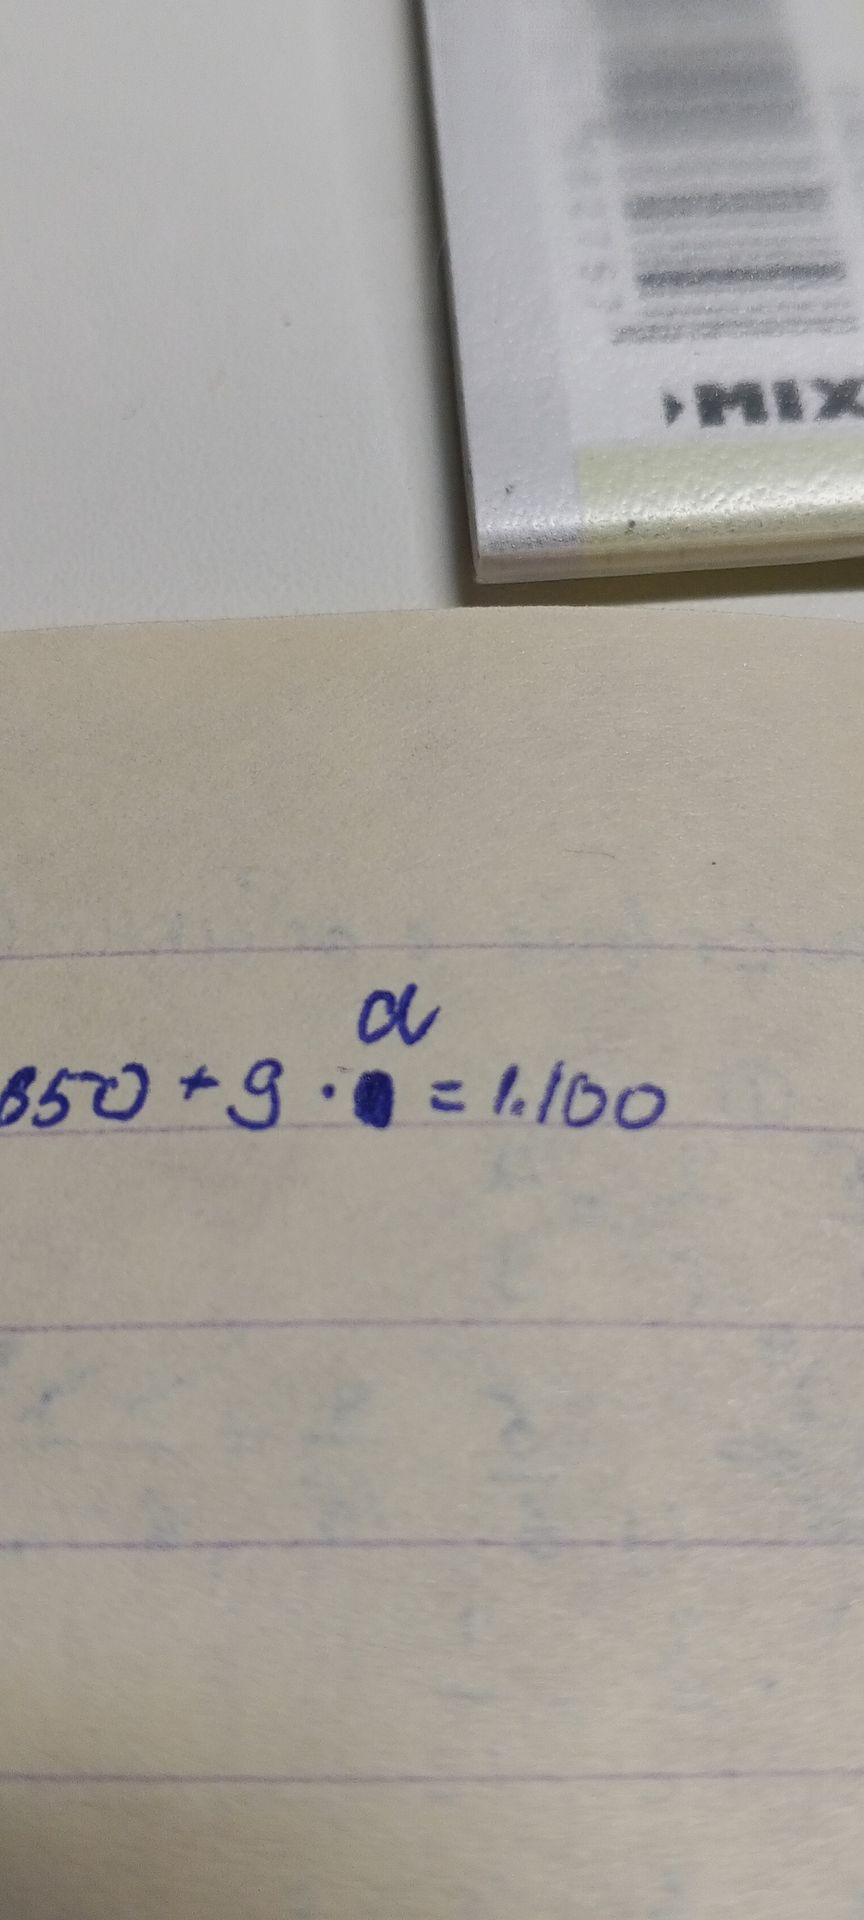 MIX
a
650 + 9 · = 1.100